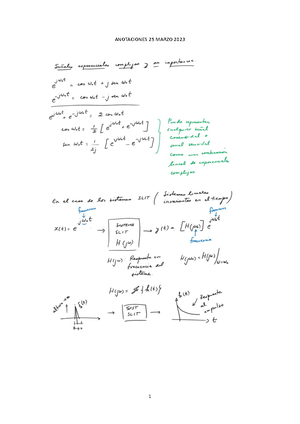 ANOTACIONES 25 MARZO 2023
Señales exponenciales complejas y su importancia
e^{jω₀t} = cos ω₀t + j sen ω₀t
e^{-jω₀t} = cos ω₀t - j sen ω₀t
e^{jω₀t} + e^{-jω₀t} = 2 cos ω₀t
cos ω₀t = 1/2 [e^{jω₀t} + e^{-jω₀t}]
sen ω₀t = 1/2j [e^{jω₀t} - e^{-jω₀t}]
Puedo representar
cualquier señal
cosenoidal o
senoidal
como una combinación
lineal de exponenciales
complejas
En el caso de los sistemas SLIT (Sistemas lineales
invariantes en el tiempo)
x(t) = e^{jω₀t} → SISTEMA SLIT H(jω) → y(t) = [H(jω)] e^{jω₀t}
frecuencia
H(jω): Respuesta en
frecuencia del
sistema
H(jω) = H(jω)|ω=ω₀
H(jω) = F{h(t)}
δ(t) → SIST SLIT → h(t) Respuesta
al
impulso
t
1